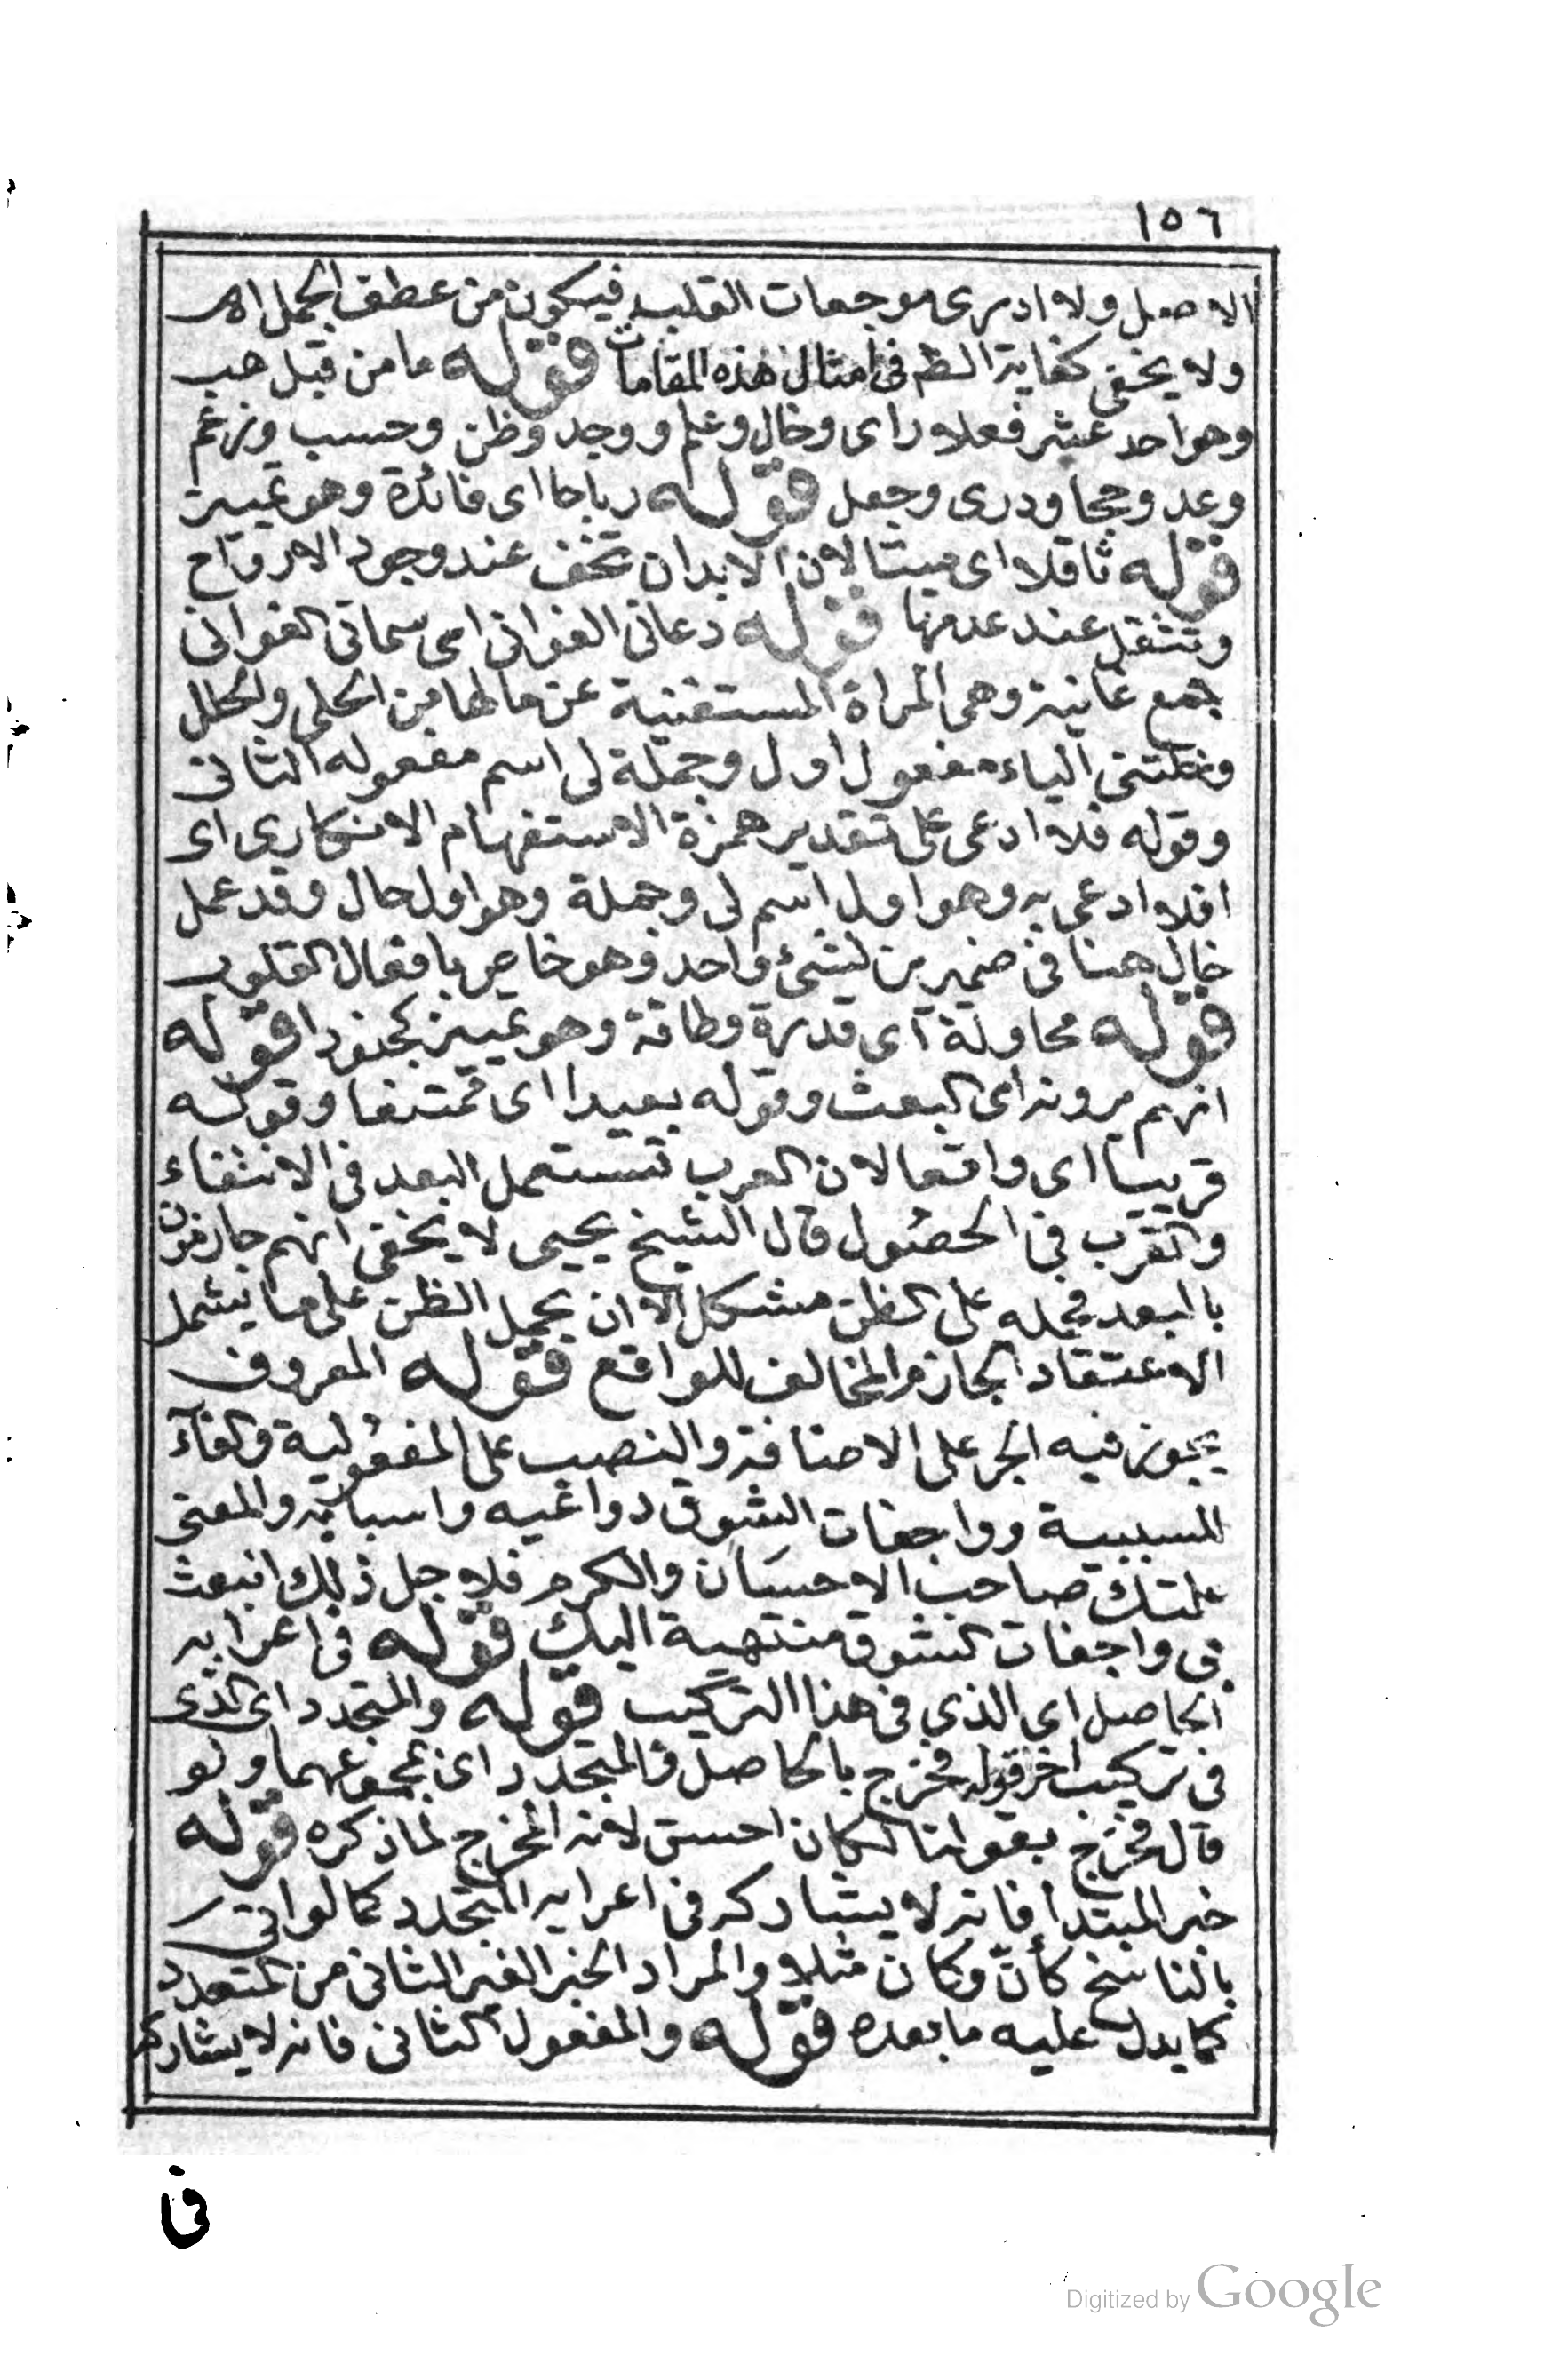 ١٥٦
الاصل ولا ادرى موجعات القلب فيكون من عطف الجمل اهـ
ولا يخفى كفاية الظم فى امثال هذه المقامات قوله ما من قبل حب
وهو احد عشر فعلا راى وخال وعلم ووجد وظن وحسب وزعم
وعد وحجا ودرى وجعل قوله رباحا اى فائدة وهو تمييز
قوله ثاقلا اى ميتا لان الابدان تخف عند وجود الارواح
وتثقل عند عدمها قوله دعانى الغوانى اى سمانى الغوانى
جمع غانية وهى المراة المستغنية عن مالها من الحلى والحلل
وخلتنى الياء مفعول اول وجملة لى اسم مفعوله الثانى
وقوله فلا ادعى على تقدير همزة الاستفهام الانكارى اى
افلا ادعى به وهو اول اسم لى وجملة وهو اول حال وقد عمل
خال هنا فى ضميرين لشئ واحد وهو خاص بافعال القلوب
قوله محاولة اى قدرة وطاقة وهو تمييز كجنودا قوله
انهم يرونه اى البعث وقوله بعيدا اى ممتنعا وقوله
قريبا اى واقعا لان العرب تستعمل البعد فى الانتفاء
والقرب فى الحصول قال الشيخ يحيى لا يخفى انهم جازمون
بالبعد فحمله على الظن مشكل الا ان يحمل الظن على ما يشمل
الاعتقاد الجازم المخالف للواقع قوله المعروف
يجوز فيه الجر على الاضافة والنصب على المفعولية والفاء
للسببية وواجفات الشوق دواعيه واسبابه والمعنى
علمتك صاحب الاحسان والكرم فلاجل ذلك انبعث
بى واجفات الشوق منتهية اليك قوله فى اعرابه
الحاصل اى الذى فى هذا التركيب قوله والمتجدد اى الذى
فى تركيب اخر قوله فخرج بالحاصل والمتجدد اى بمجموعهما ولو
قال فخرج بقولنا لكان احسن لانه المخرج لما ذكره قوله
خبر المبتدأ فانه لا يشاركه فى اعرابه المتجدد كما لو اتى
بالناسخ كأنّ وكان مثلا والمراد الخبر الغير الثانى من المتعدد
كما يدل عليه ما بعده قوله والمفعول الثانى فانه لا يشاركه
فى
Digitized by Google